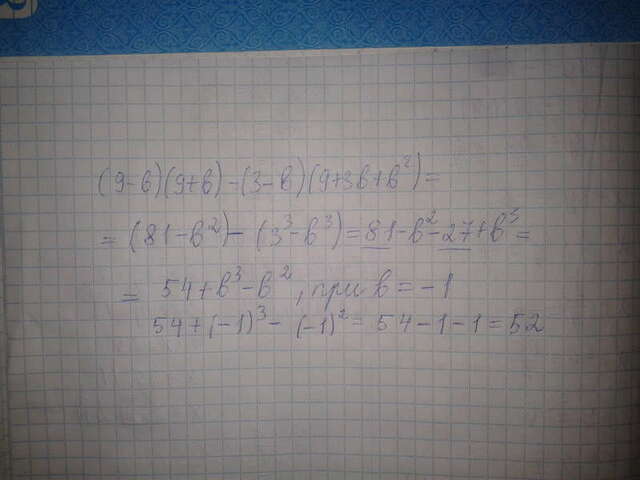 (9-в)(9+в)-(3-в)(9+3в+в²)=
=(81-в²)-(3³-в³)=81-в²-27+в³=
= 54+в³-в², при в=-1
54+(-1)³-(-1)²= 54-1-1=52